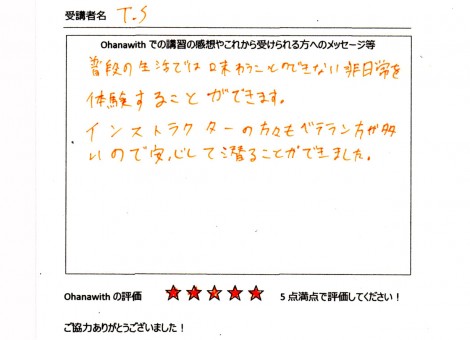 受講者名 T.S
Ohanawith での講習の感想やこれから受けられる方へのメッセージ等
普段の生活では味わうことのできない非日常を
体験することができます。
インストラクターの方々もベテラン方が多
いので安心して潜ることができました。
Ohanawith の評価 ★★★★★ 5 点満点で評価してください！
ご協力ありがとうございました！